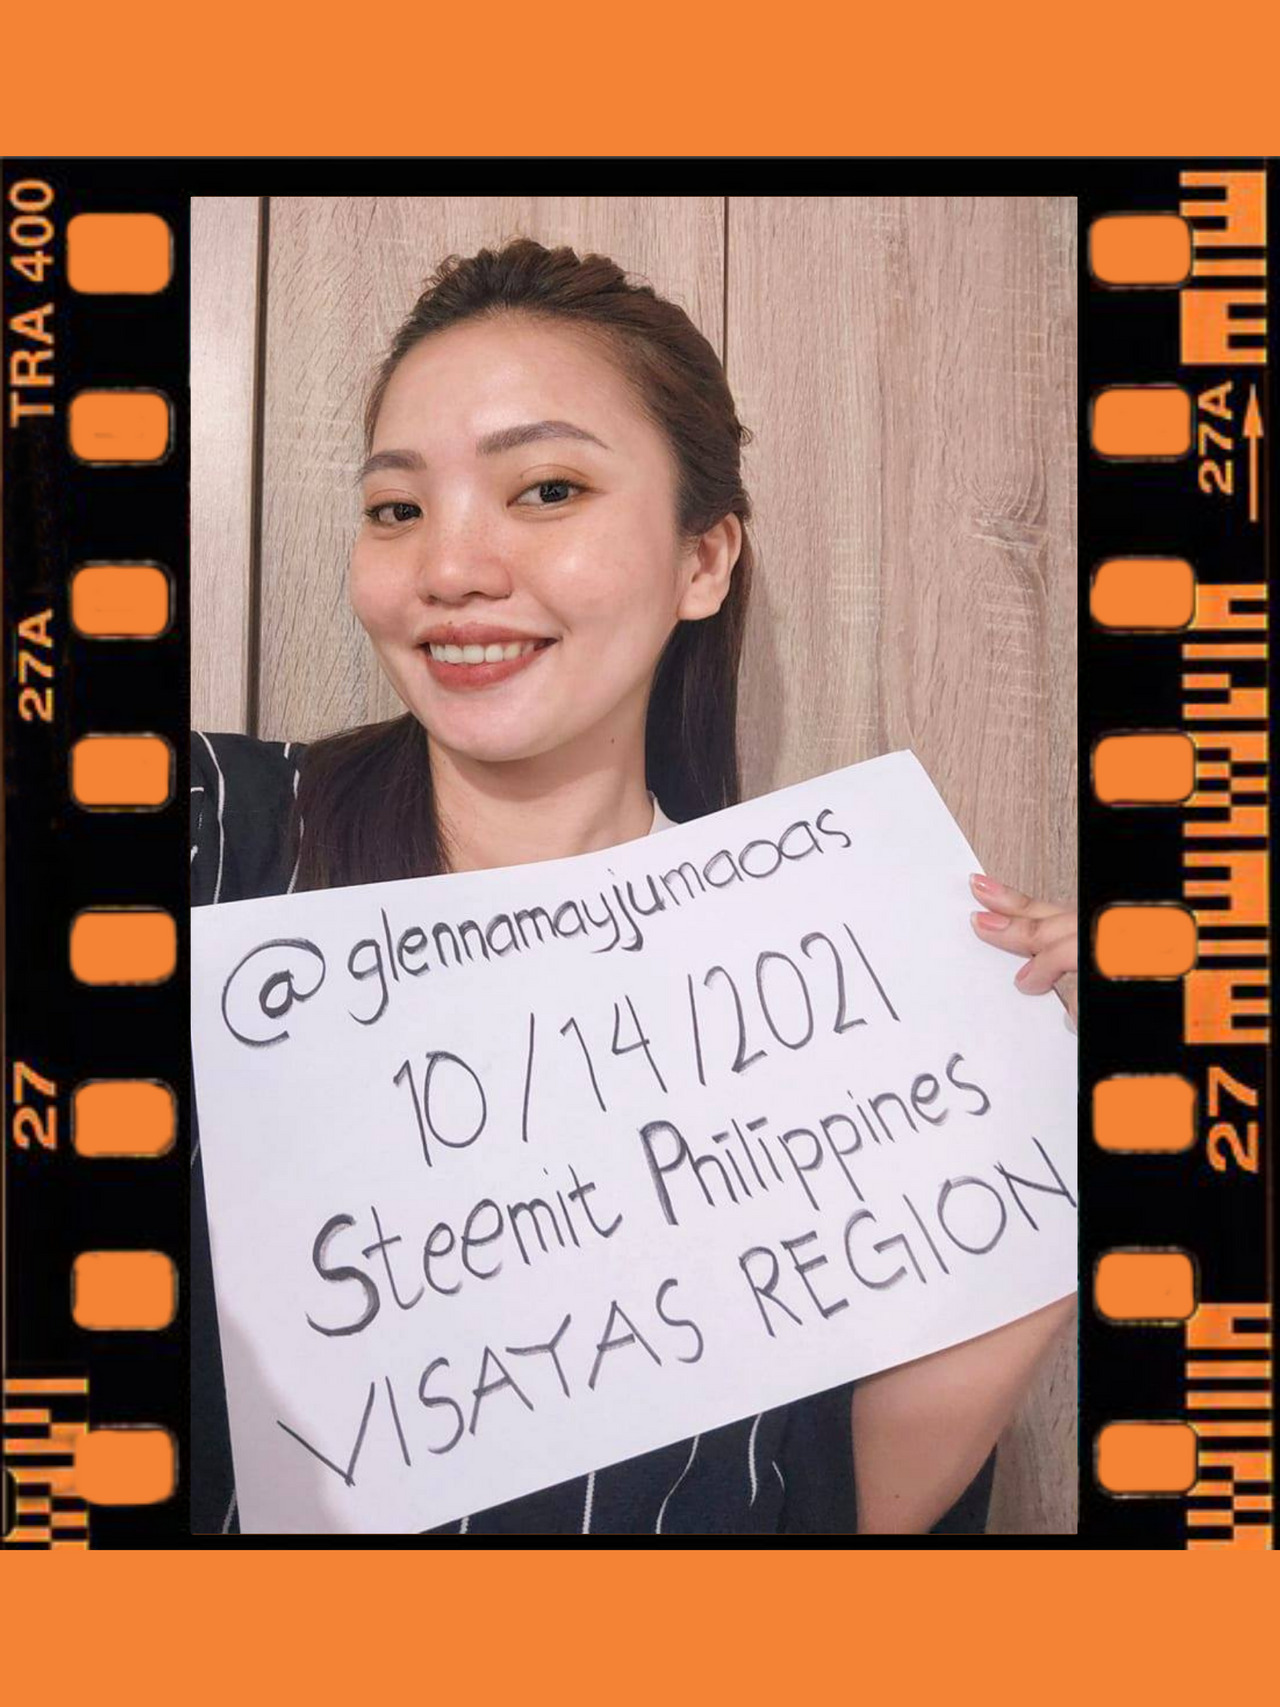 TRA 400
27A
27
@glennamayjumaoas
10/14/2021
Steemit Philippines
VISAYAS REGION
27A
27